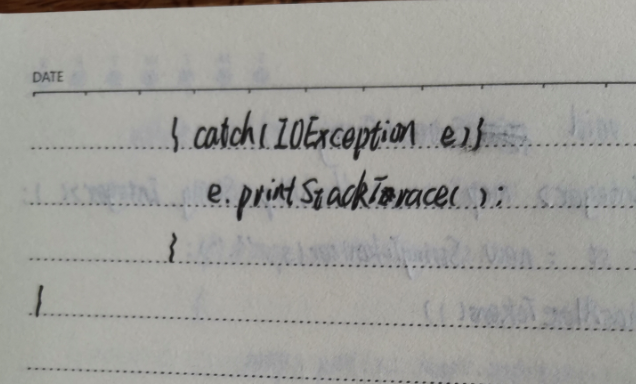 DATE
} catch(IOException e){
e.printStackTrace();
}
}